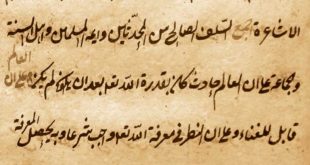 الاشاعرة اجمع السلف الصالح من المحدثين وائمة المسلمين واهل السنة
والجماعة على ان العالم حادث كان بقدرة الله تع بعد ان لم يكن وعلى ان العالم
قابل للفناء وعلى ان النظر في معرفة الله تع واجب شرعا وبه يحصل المعرفة